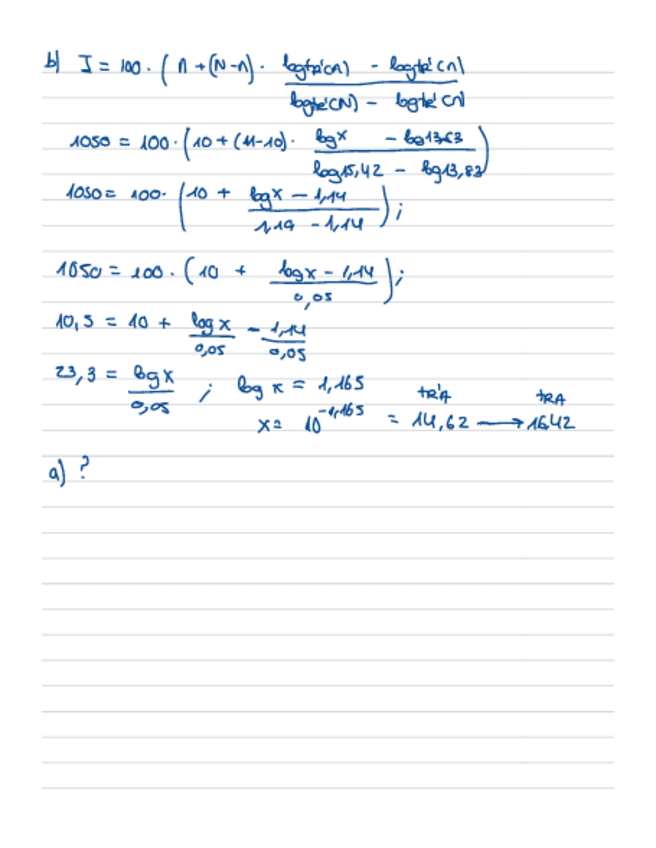 b) I = 100 · ( n + (N-n) · (log tr'(n) - log tr'(n)) / (log tr'(N) - log tr'(n))
1050 = 100 · (10 + (11-10) · (log x - log 13,83) / (log 15,42 - log 13,83))
1050 = 100 · (10 + (log x - 1,14) / (1,19 - 1,14)) ;
1050 = 100 · (10 + (log x - 1,14) / 0,05) ;
10,5 = 10 + log x / 0,05 - 1,14 / 0,05
23,3 = log x / 0,05 ; log x = 1,165
x = 10^-1,165 = 14,62 → 16,42
tR'A tRA
a) ?